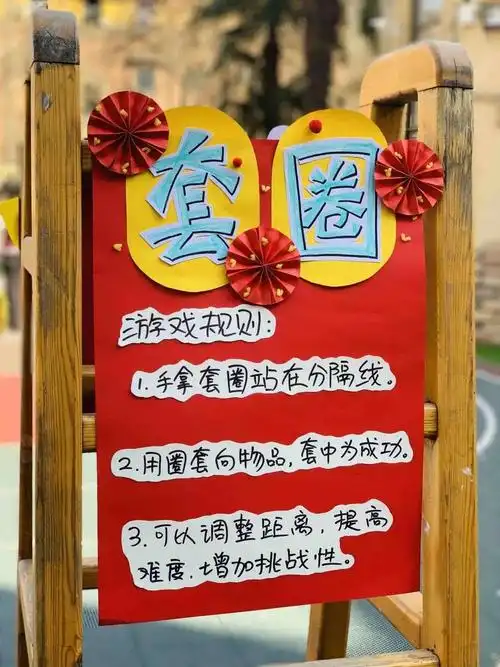 套圈
游戏规则:
1.手拿套圈站在分隔线。
2.用圈套向物品,套中为成功。
3.可以调整距离,提高
难度.增加挑战性。